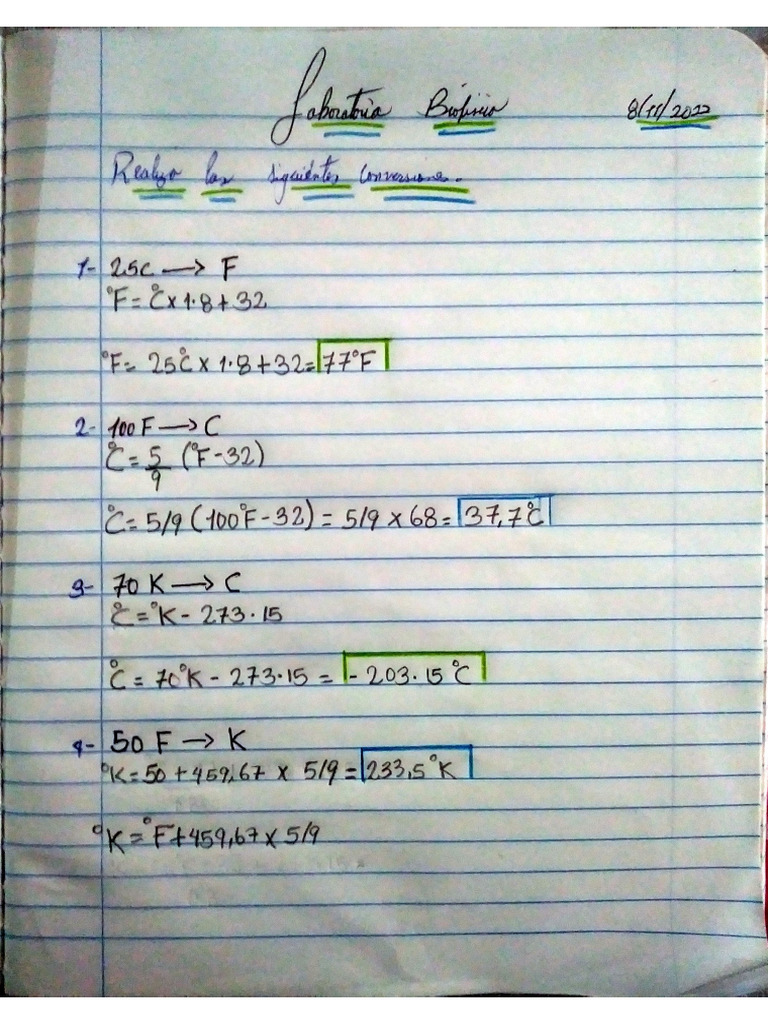 Laboratorio Biofísica 8/11/2022
Realizo las siguientes conversiones.
1- 25c → F
°F = °C x 1.8 + 32
°F = 25°C x 1.8 + 32 = 77°F
2- 100 F → C
°C = 5/9 (°F - 32)
°C = 5/9 (100°F - 32) = 5/9 x 68 = 37,7°C
3- 70 K → C
°C = °K - 273.15
°C = 70°K - 273.15 = - 203.15 °C
4- 50 F → K
°K = 50 + 459,67 x 5/9 = 233,5°K
°K = °F + 459,67 x 5/9